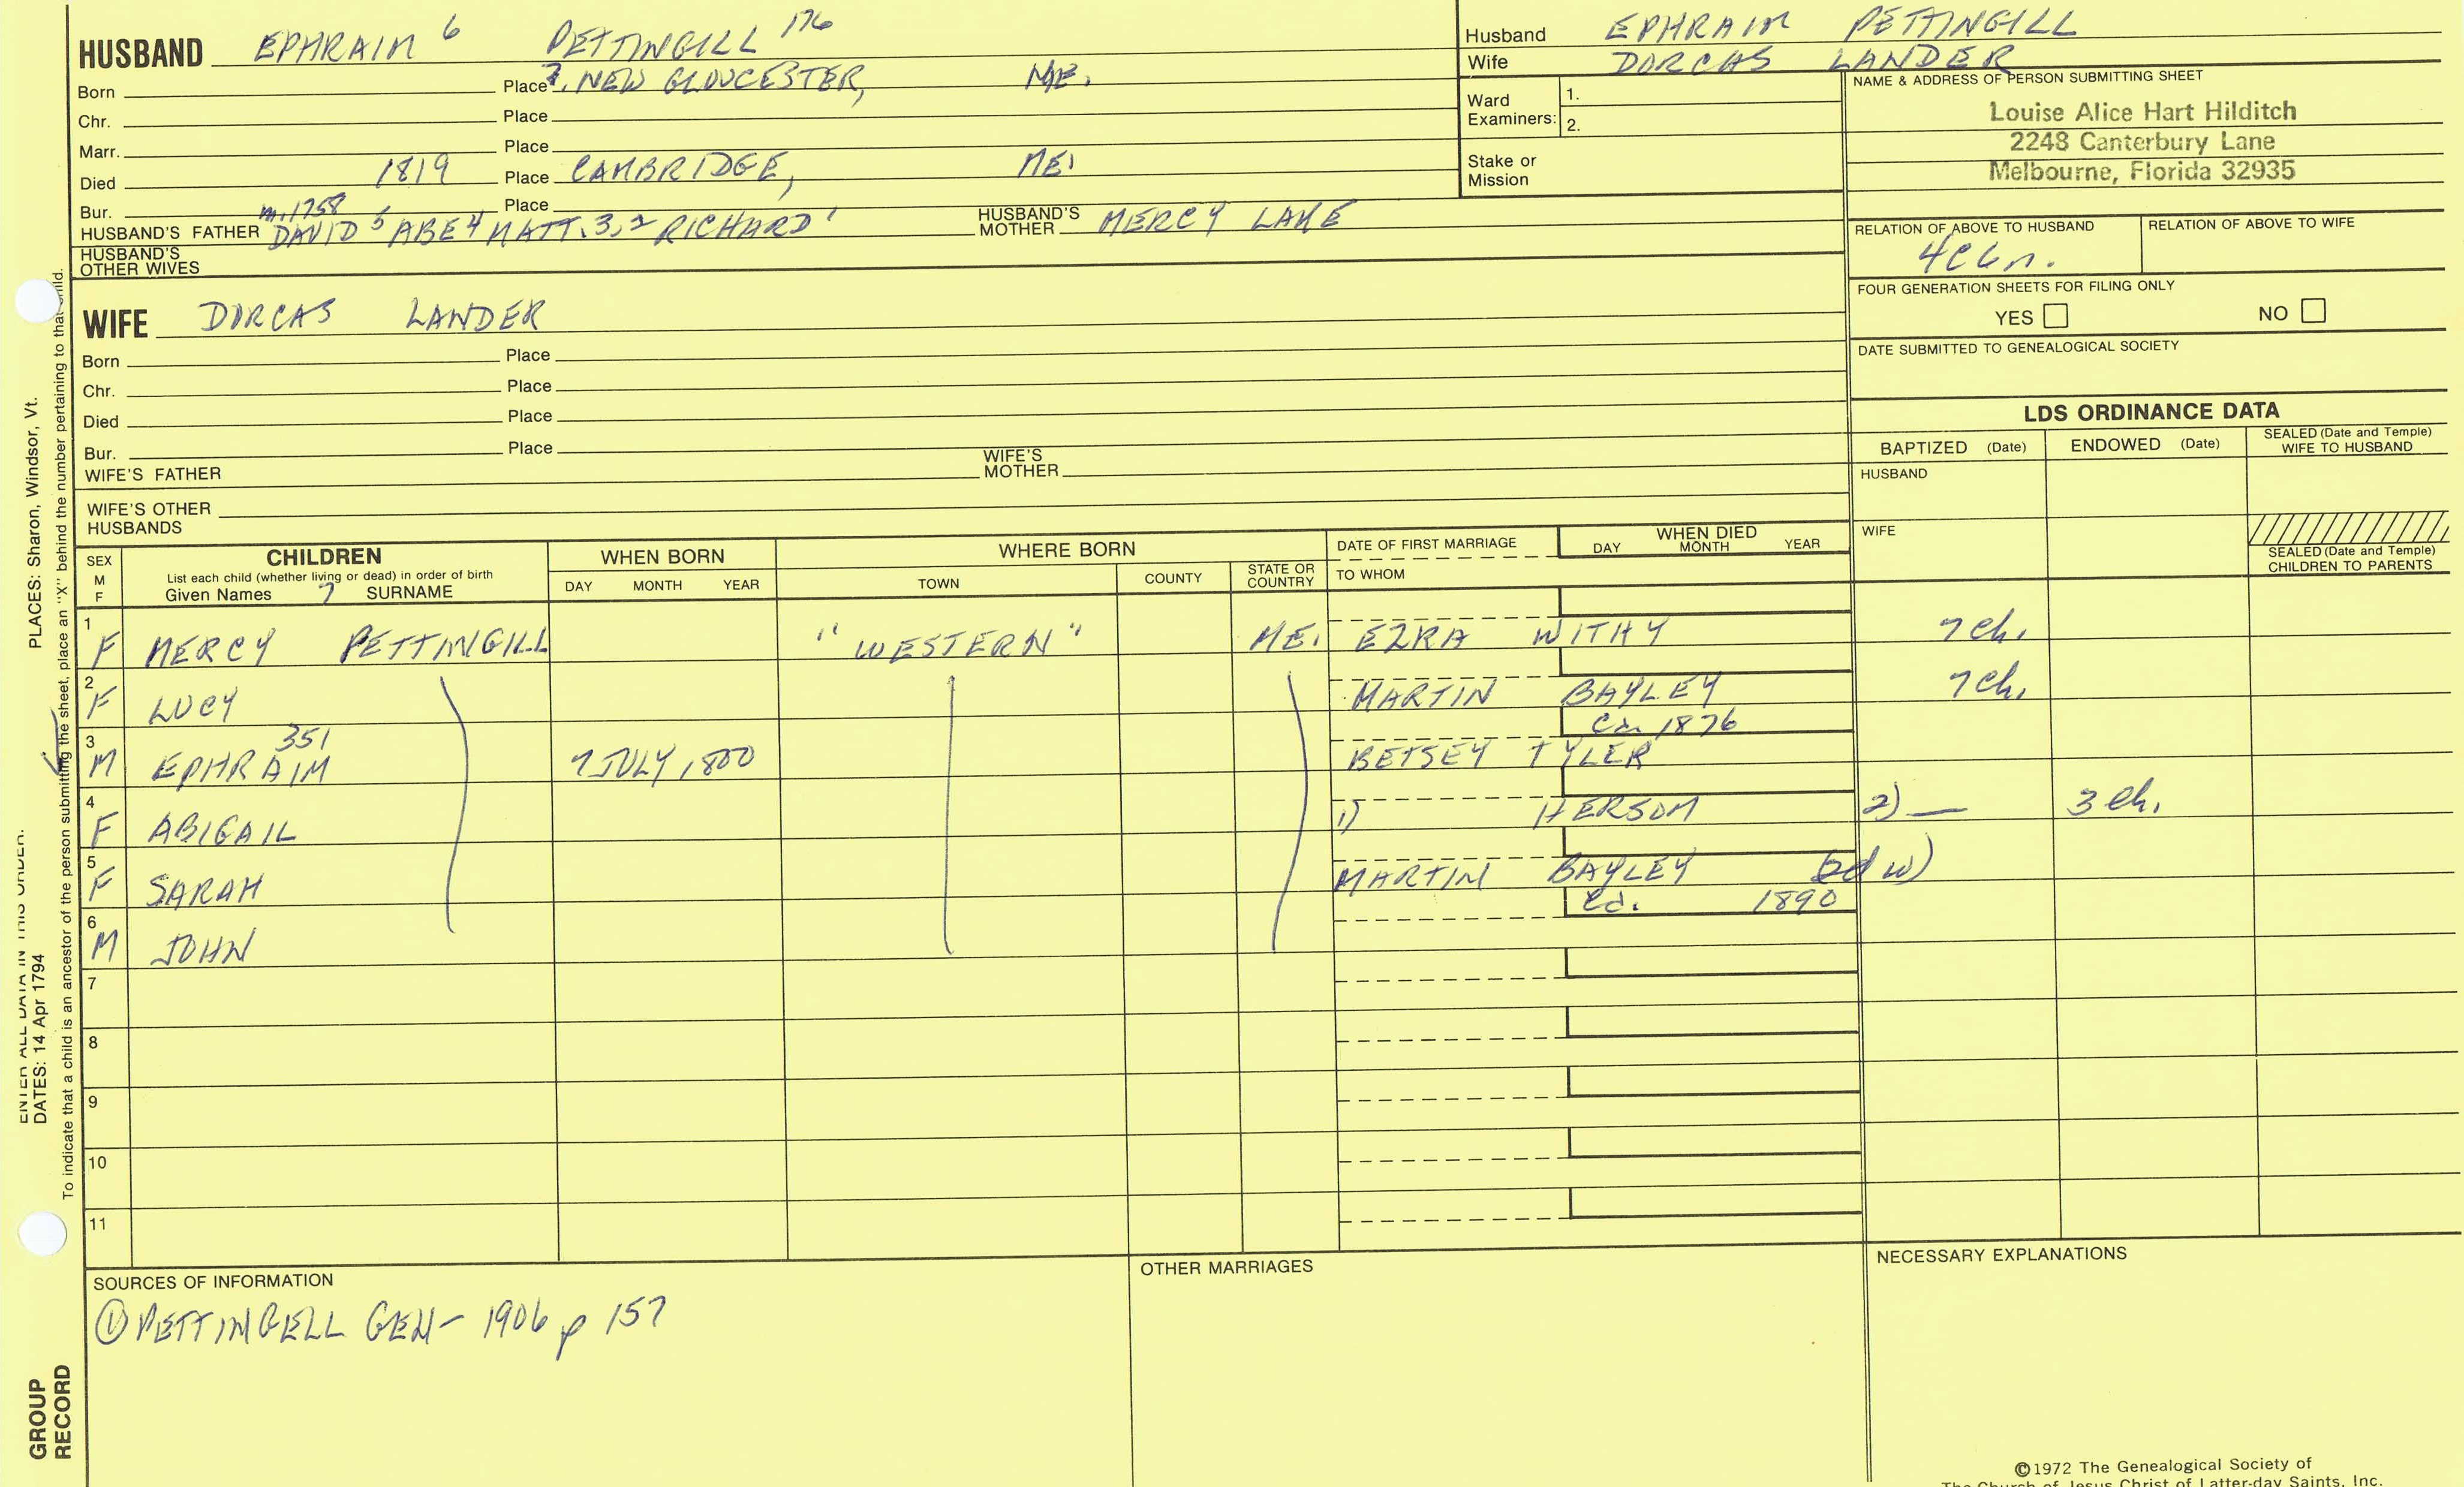 HUSBAND EPHRAIM 6 PETTINGILL 176
Born Place ?, NEW GLOUCESTER, ME.
Chr. Place
Marr. Place
Died 1819 Place CAMBRIDGE, ME.
Bur. Place
m. 1758
HUSBAND'S FATHER DAVID 5 ABE 4 MATT. 3, 2 RICHARD 1 HUSBAND'S MOTHER MERCY LANE
HUSBAND'S OTHER WIVES
Husband EPHRAIM PETTINGILL
Wife DORCAS LANDER
Ward Examiners: 1.
2.
Stake or Mission
NAME & ADDRESS OF PERSON SUBMITTING SHEET
Louise Alice Hart Hilditch
2248 Canterbury Lane
Melbourne, Florida 32935
RELATION OF ABOVE TO HUSBAND RELATION OF ABOVE TO WIFE
FOUR GENERATION SHEETS FOR FILING ONLY
YES NO
DATE SUBMITTED TO GENEALOGICAL SOCIETY
WIFE DORCAS LANDER
Born Place
Chr. Place
Died Place
Bur. Place
WIFE'S FATHER WIFE'S MOTHER
WIFE'S OTHER HUSBANDS
LDS ORDINANCE DATA
BAPTIZED (Date) ENDOWED (Date) SEALED (Date and Temple) WIFE TO HUSBAND
HUSBAND
WIFE
SEALED (Date and Temple) CHILDREN TO PARENTS
SEX M F
CHILDREN
List each child (whether living or dead) in order of birth
Given Names 7 SURNAME
WHEN BORN
DAY MONTH YEAR
WHERE BORN
TOWN COUNTY STATE OR COUNTRY
DATE OF FIRST MARRIAGE
TO WHOM
WHEN DIED
DAY MONTH YEAR
1 F MERCY PETTINGILL "WESTERN" ME. EZRA WITHY 7 Ch.
2 F LUCY MARTIN BAYLEY 7 Ch.
Ca. 1876
3 M EPHRAIM 351 7 JULY 1800 BETSEY TYLER
4 F ABIGAIL 1) HERSOM 2) — 3 Ch.
5 F SARAH MARTIN BAYLEY (2d w)
Ca. 1890
6 M JOHN
7
8
9
10
11
SOURCES OF INFORMATION
① PETTINGELL GEN- 1906 p 157
OTHER MARRIAGES
NECESSARY EXPLANATIONS
©1972 The Genealogical Society of
The Church of Jesus Christ of Latter-day Saints, Inc.
ENTER ALL DATA IN THIS ORDER:
DATES: 14 Apr 1794 PLACES: Sharon, Windsor, Vt.
To indicate that a child is an ancestor of the person submitting the sheet, place an "X" behind the number pertaining to that child.
GROUP
RECORD